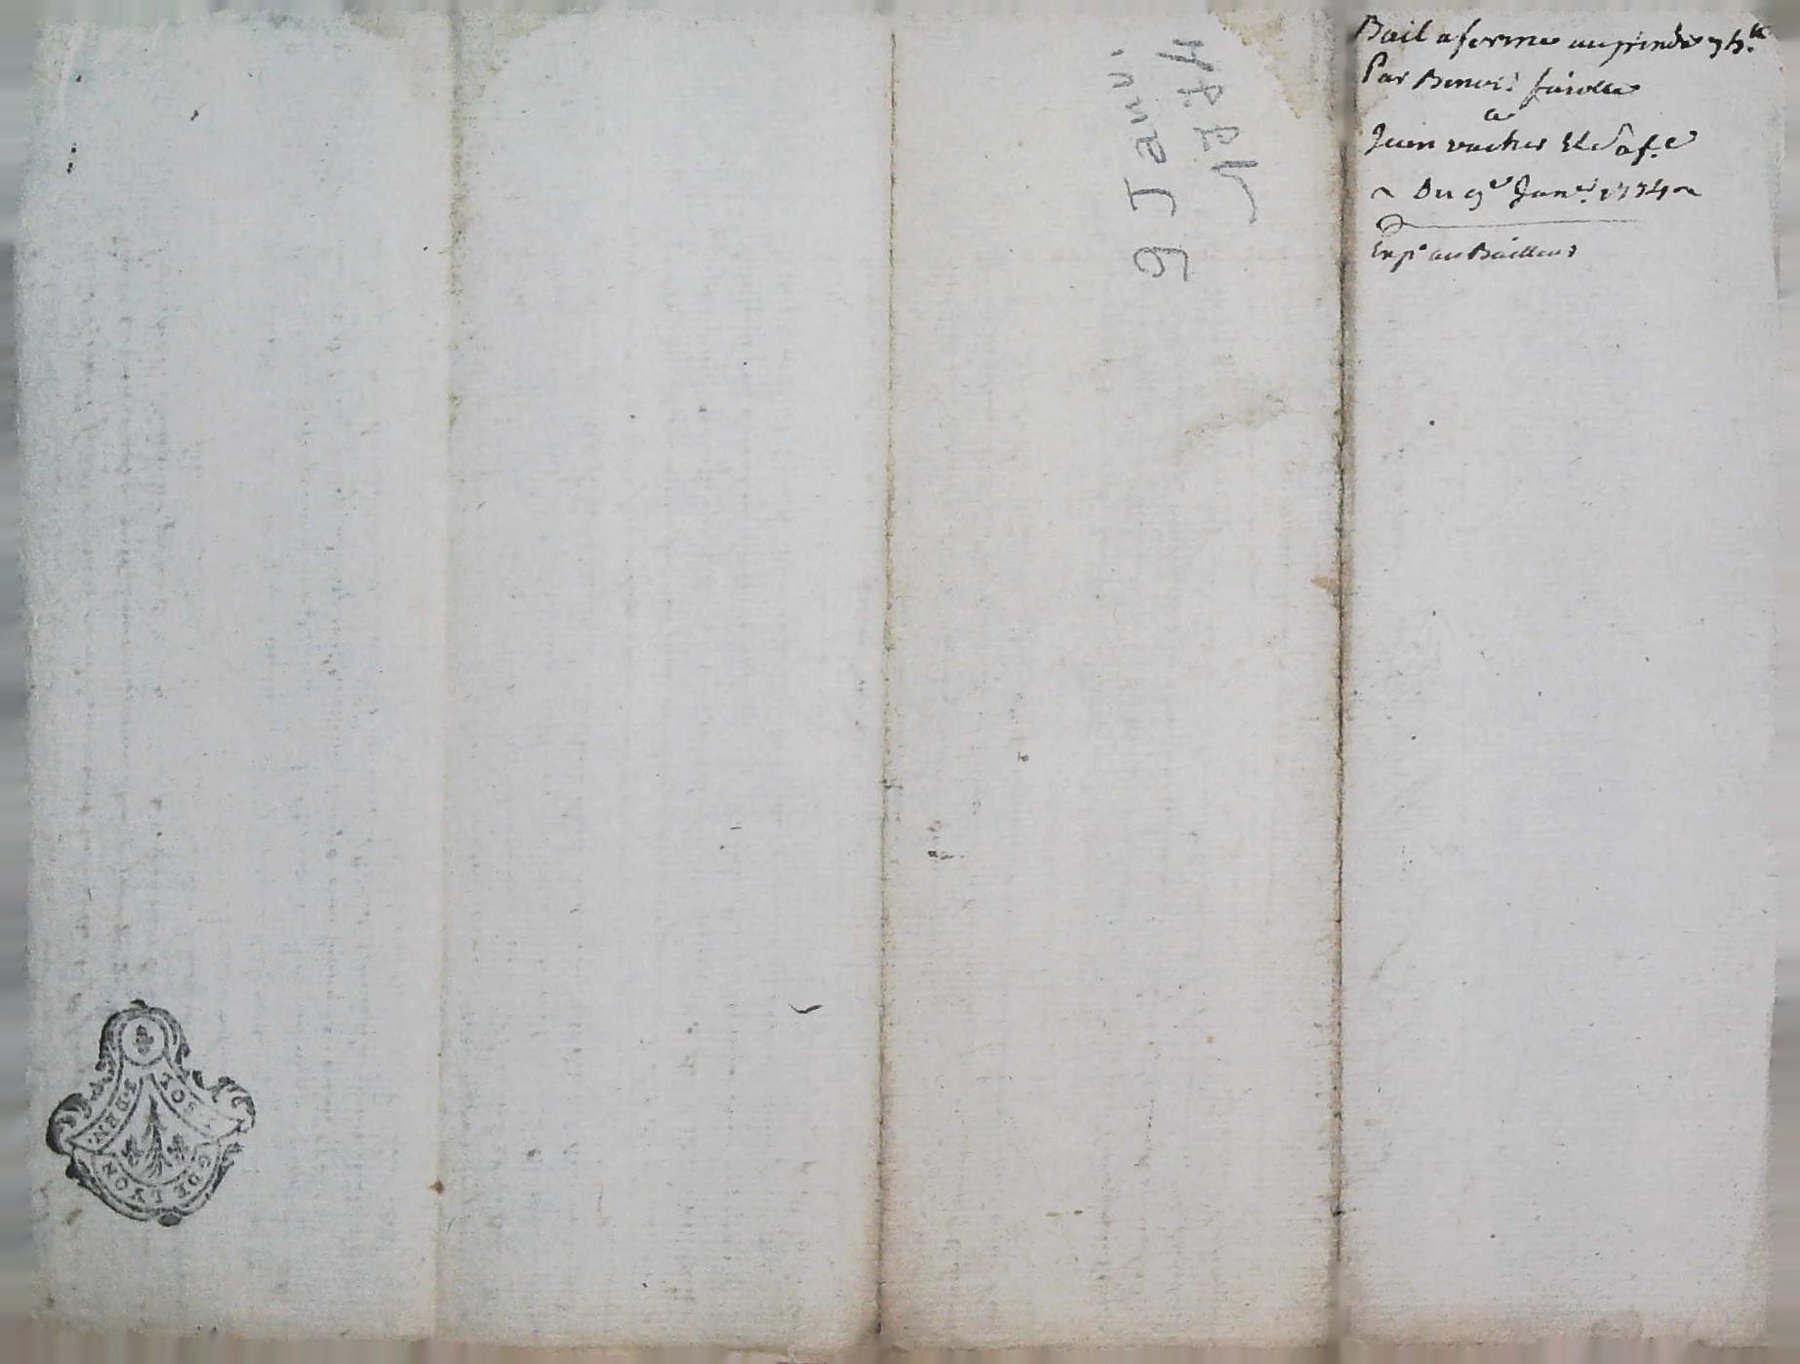 Bail a ferme au prix de 75.tt
Par Benoit
a
Jean vacher et sa f.e
~ Du 9e Janer. 1774 ~
Exp.e au Bailleur
9 Janvi.
1774
SOL
GDE LYON